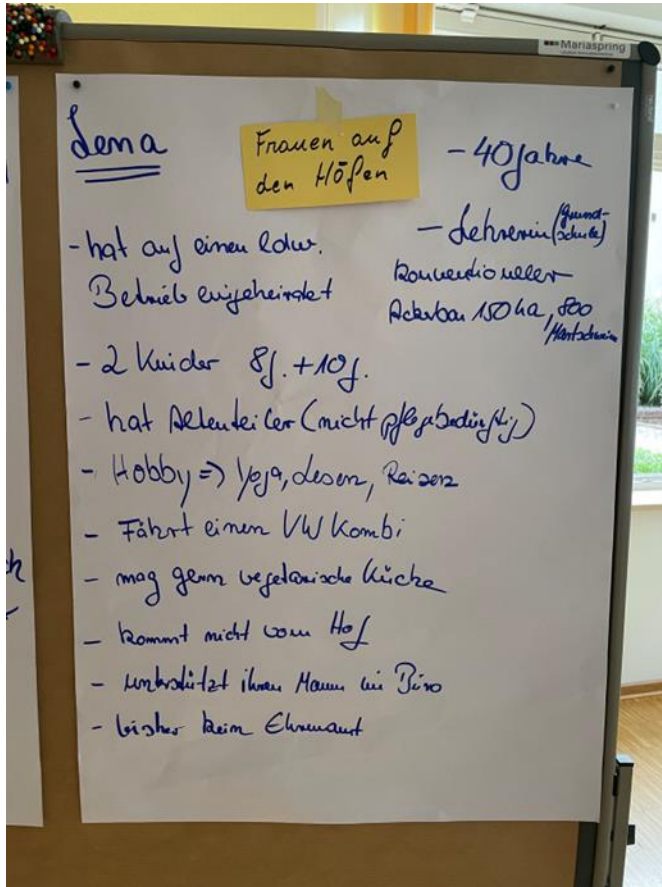 Mariaspring
Lena
Frauen auf
den Höfen
- 40 Jahre
- Lehrerin (Grund-
schule)
- hat auf einen ldw.
Betrieb eingeheiratet
konventioneller
Ackerbau 150 ha, 800
Mastschweine
- 2 Kinder 8J. + 10J.
- hat Altenteiler (nicht pflegebedürftig)
- Hobby => Yoga, Lesen, Reisen
- Fährt einen VW Kombi
- mag gern vegetarische Küche
- kommt nicht vom Hof
- unterstützt ihren Mann im Büro
- bisher kein Ehrenamt